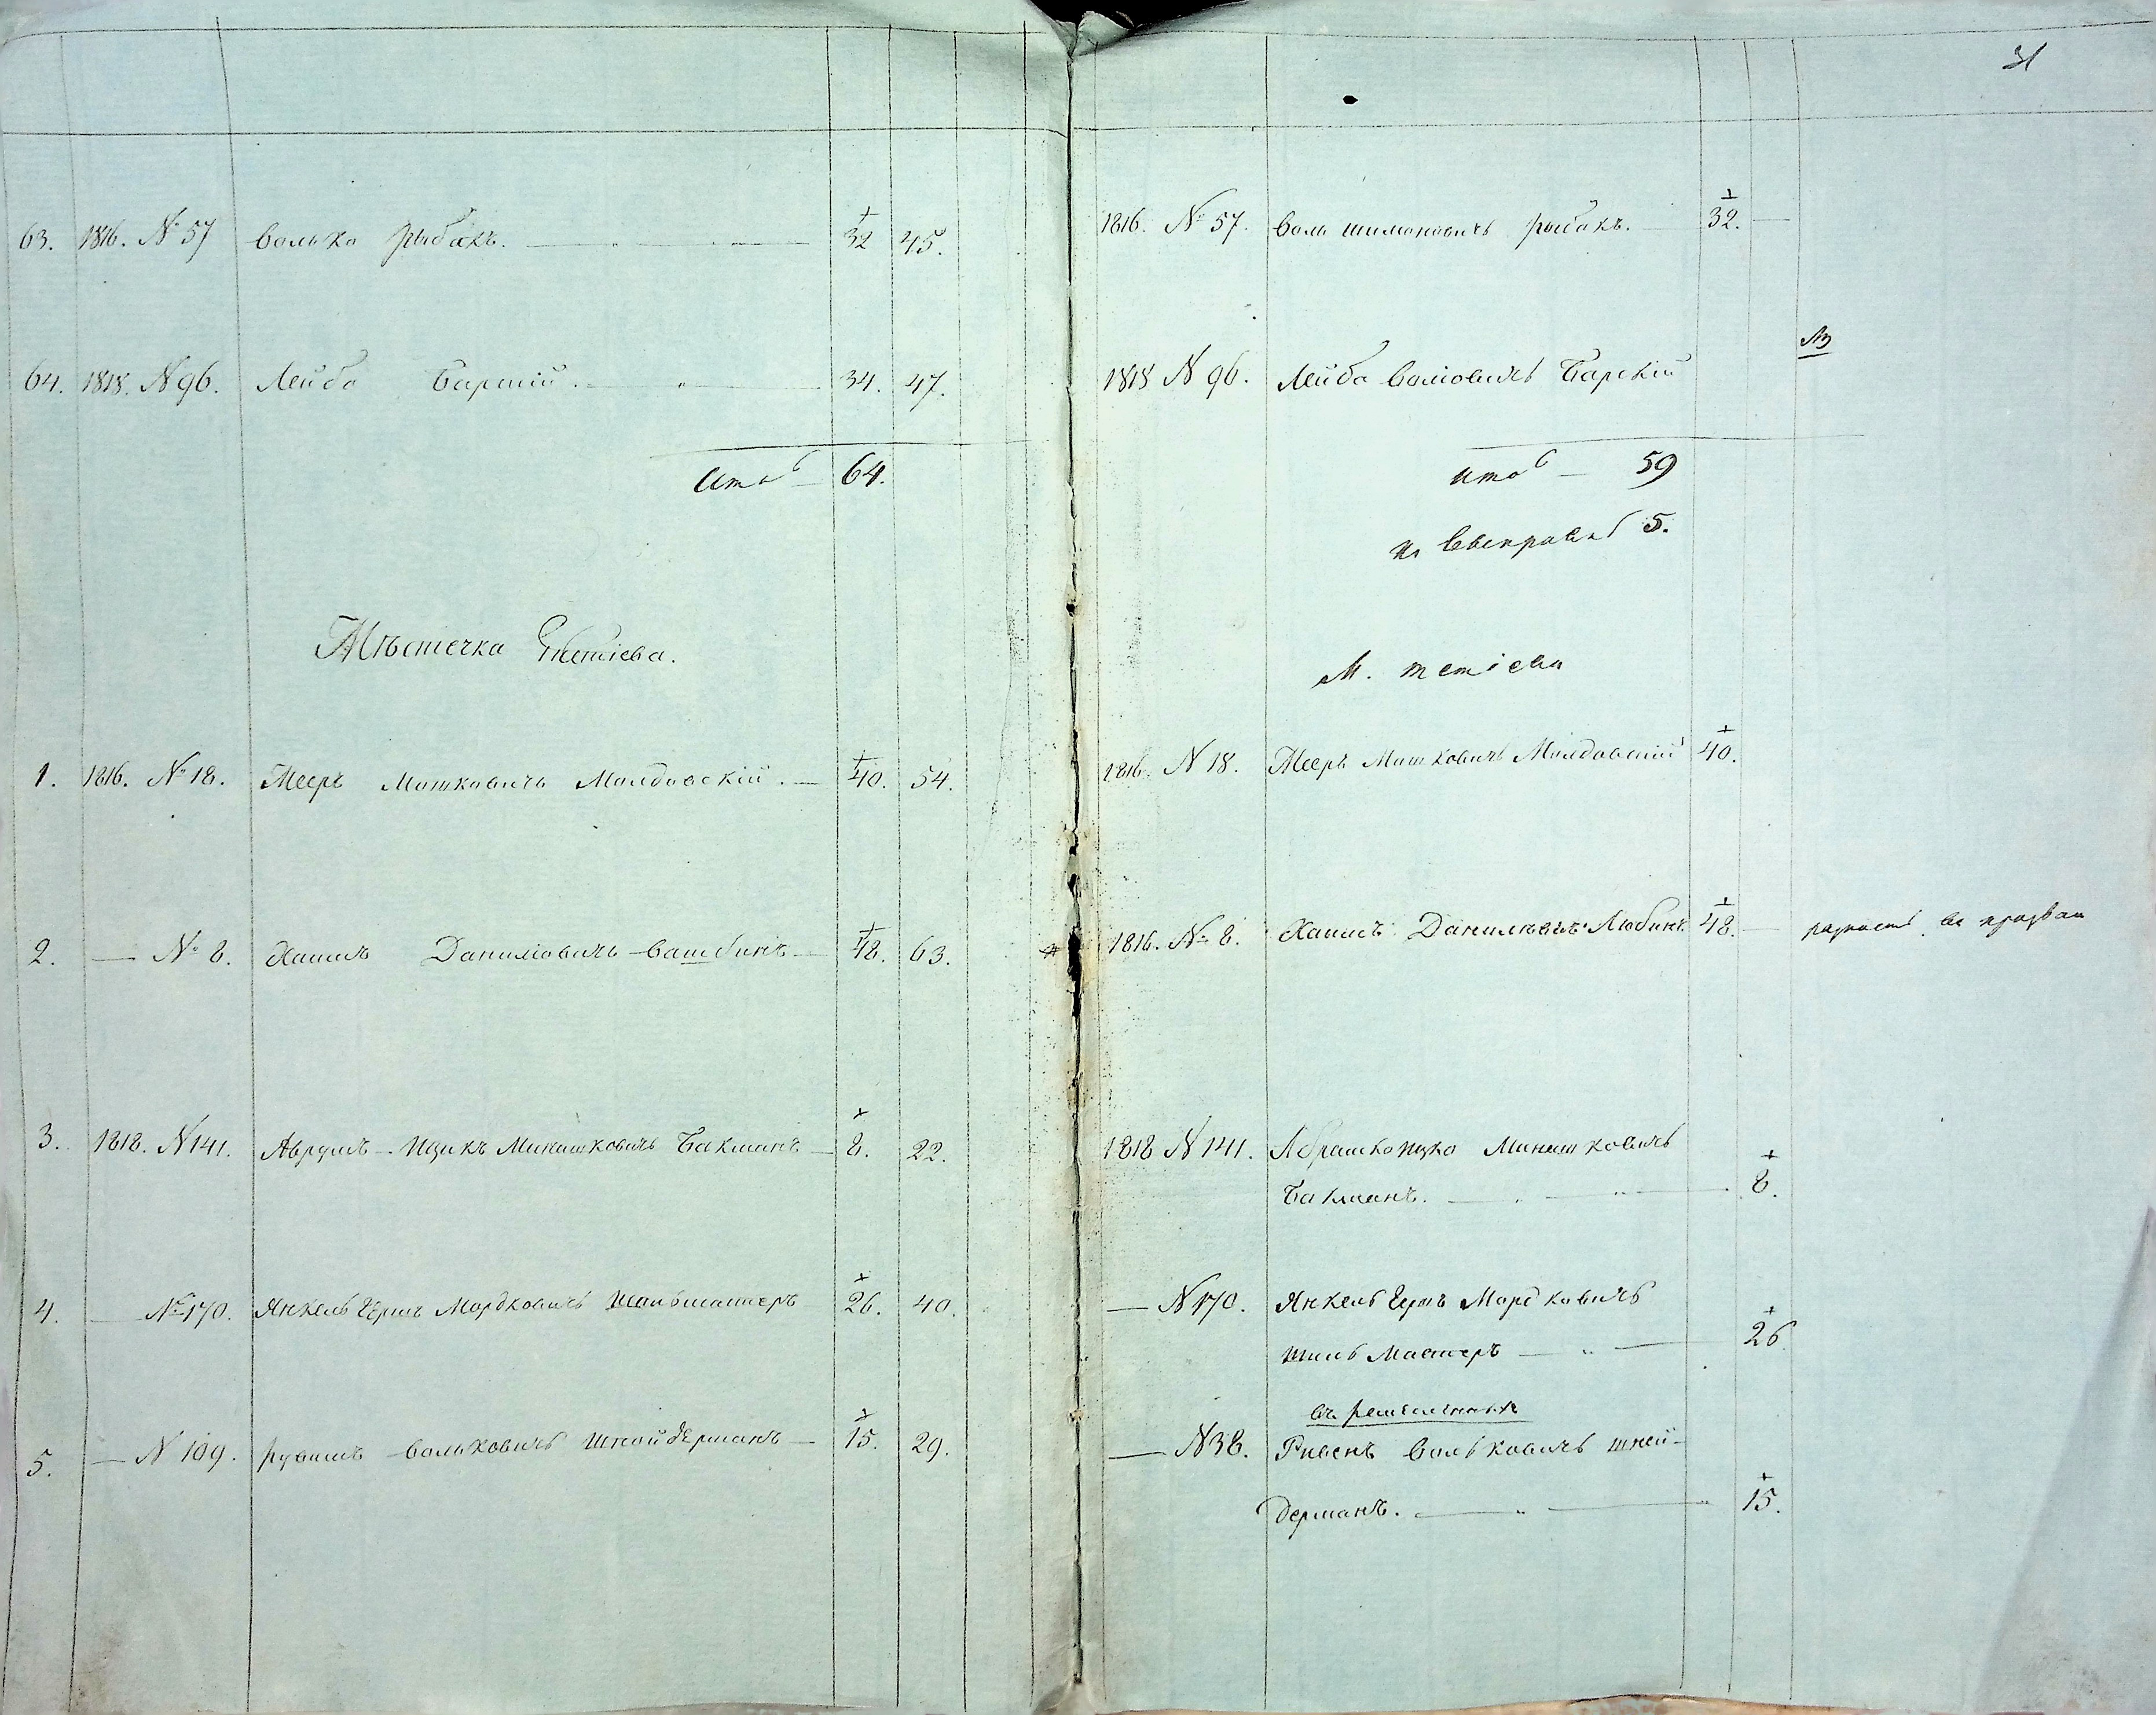 63. 1816. № 57 Волько Рыбакъ. 32 45.
64. 1818. № 96. Лейба Барскій. 34. 47.
Итого 64.
Мѣстечка Тетіева.
1. 1816. № 18. Мееръ Мошковичъ Молдовскій. 40. 54.
2. — № 8. Хаимъ Даниловичъ 48. 63.
3. 1818. № 141. Аврумъ-Ицикъ Минашковичъ Бакманъ 8. 22.
4. — № 170. Янкель Гершъ Мордковичъ Шпильмастеръ 26. 40.
5. — № 109. Рувинъ Вольковичъ Шнойдерманъ 15. 29.
31
1816. № 57. Воль Шимоновичъ Рыбакъ. 32.
1818 № 96. Лейба Барскій
итого — 59
5.
М. Тетіева
1816. № 18. Мееръ Мошковичъ Молдовскій 40.
1816. № 8. Хаимъ Даниловичъ Любинъ 48. — разность въ прозван
1818 № 141. Абрашко Ицко Минашковичъ
Бакманъ. 8.
— № 170. Янкель Гершъ Мордковичъ
Мастеръ 26
— № 38. Ривенъ Вольковичъ Шней-
дерманъ. 15.